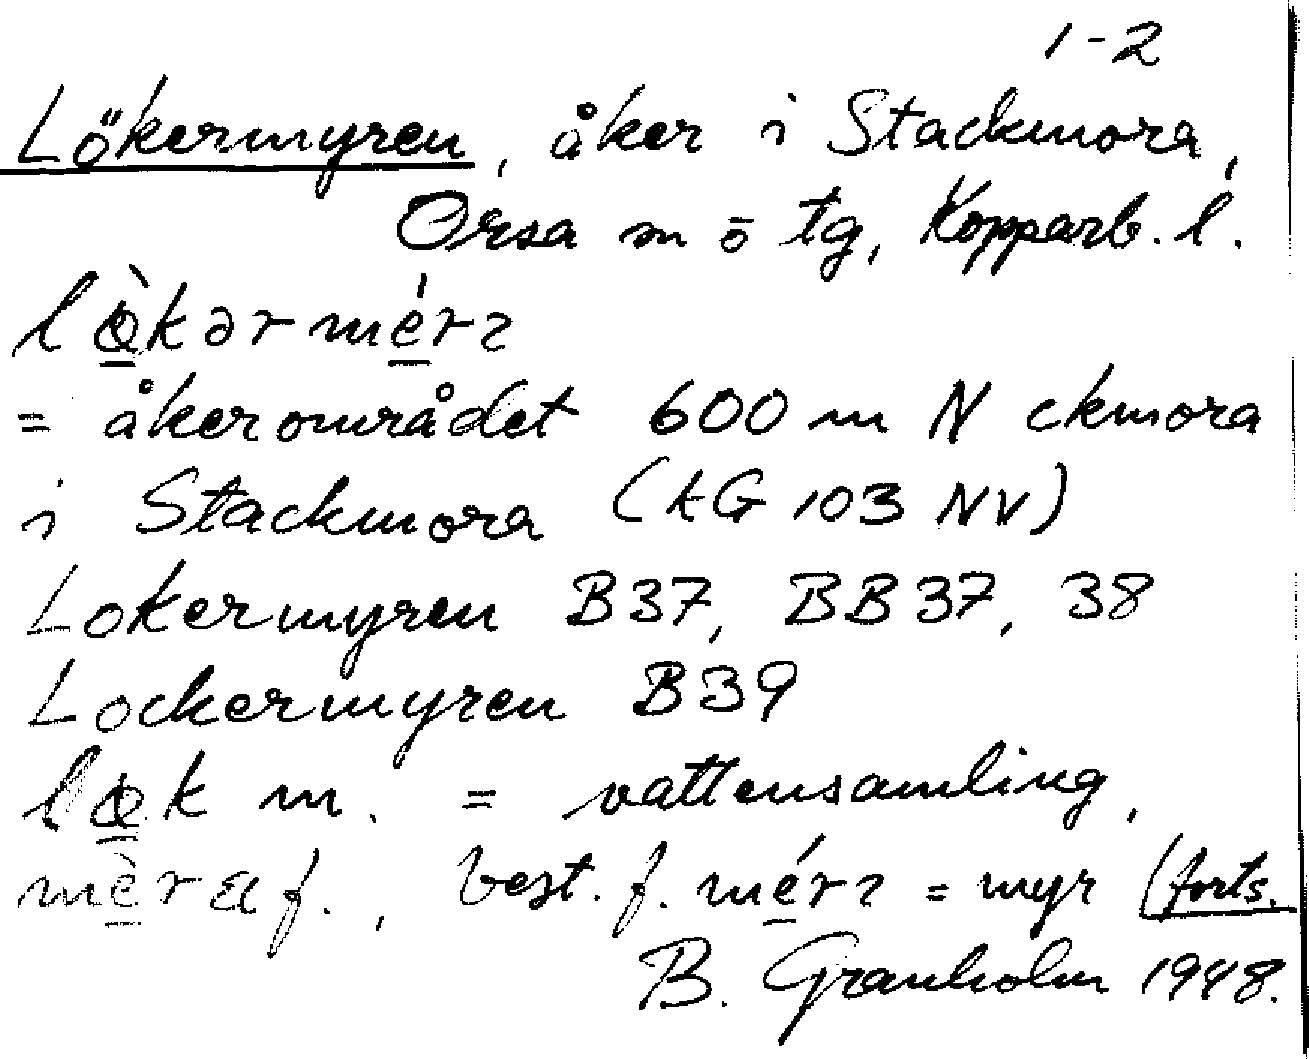 1-2
Lökermyren, åker i Stackmora,
Orsa sn ö tg, Kopparb. l.
= åkerområdet 600 m N ckmora
i Stackmora (kG 103 NV)
Lokermyren B37, BB37, 38
Lockermyren B39
m. = vattensamling,
f., best. f. = myr (forts.
B. Granholm 1948.